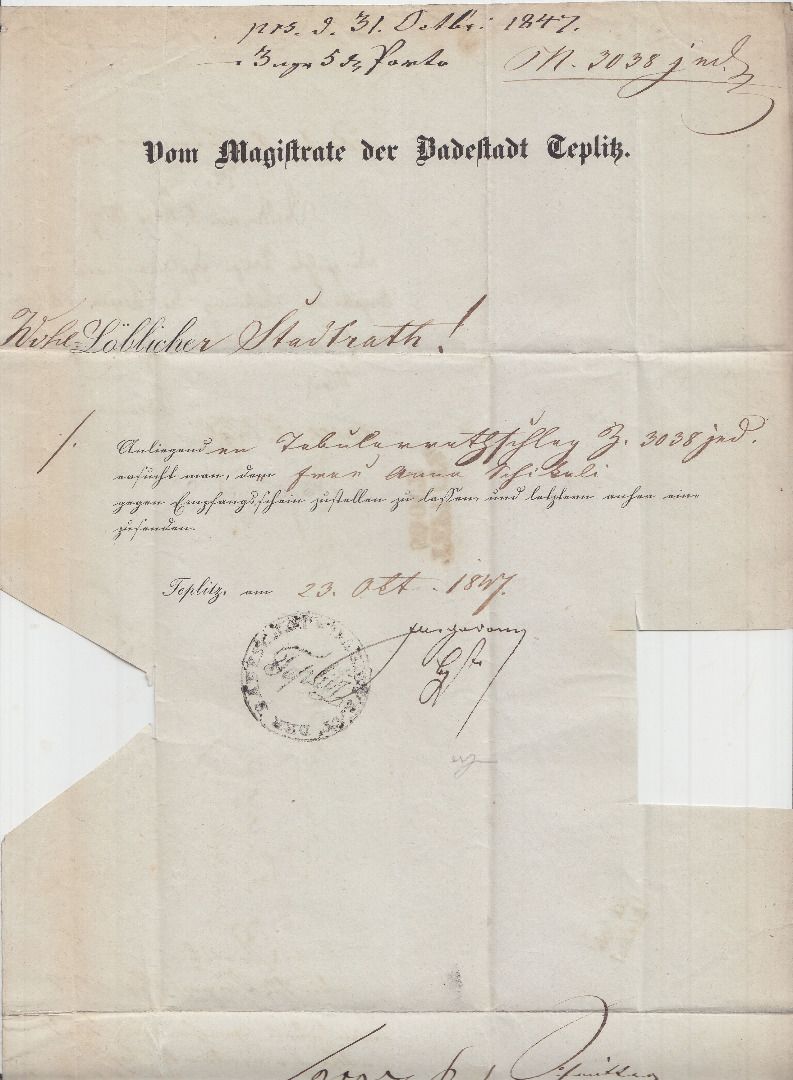 prs. d. 31. Octbr: 1847.
3 ngr 5 dz Porto N. 3038 jud.
Vom Magistrate der Badestadt Teplitz.
Wohl-Löblicher Stadtrath!
/. Anliegenden Tabularrathschlag Z. 3038 jud.
ersucht man, der Frau Anna
gegen Empfangsschein zustellen zu lassen und letztern anher ein-
zusenden.
Teplitz, am 23. Okt. 1847.
Teplitz